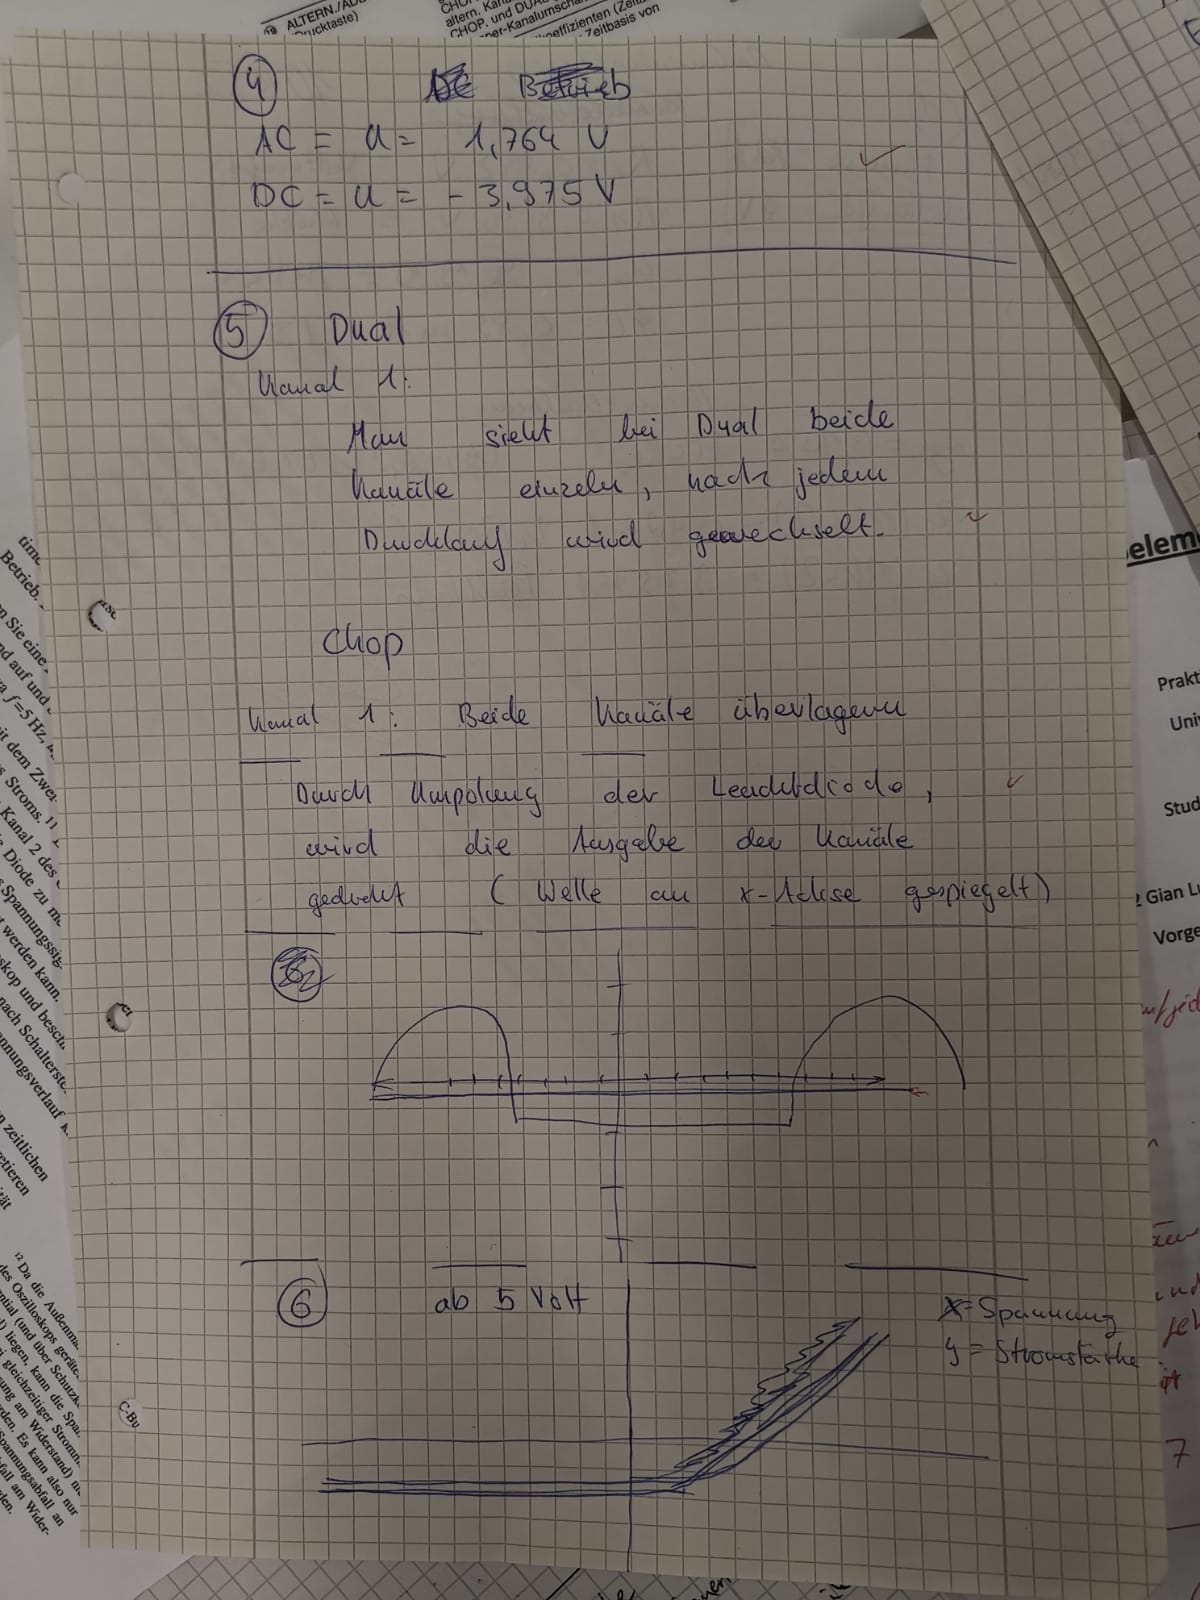 ⑲ ALTERN./AD
Drucktaste)
altern. Kan
CHOP. und DUA
per-Kanalumscha
koeffizienten (Zeit
Zeitbasis von
4
Betrieb
AC = U = 1,764 V
DC = U = - 3,975 V
5 Dual
Kanal 1:
Man sieht bei Dual beide
Kanäle einzeln, nach jedem
Durchlauf wird gewechselt.
Chop
Kanal 1: Beide Kanäle überlagern
Durch Umpolung der Leuchtdiode,
wird die Ausgabe der Kanäle
gedreht (Welle an x-Achse gespiegelt)
6 ab 5 Volt
x = Spannung
y = Stromstärke
time
Betrieb.
n Sie eine
nd auf und
f=5 Hz,
it dem Zwei
s Stroms.
Kanal 2 des
Diode zu me
Spannungssig
t werden kann.
skop und besch
nach Schalterste
annungsverlauf
n zeitlichen
retieren
ität
12 Da die Außenma
des Oszilloskops geräte
ential (und über Schutzk
) liegen, kann die Spa
i gleichzeitiger Stromn
sung am Widerstand)
rden. Es kann also nur
Spannungsabfall an
fall am Wider-
den.
C-Bu
elem
Prakt
Univ
Stud
Gian Lu
Vorge
7